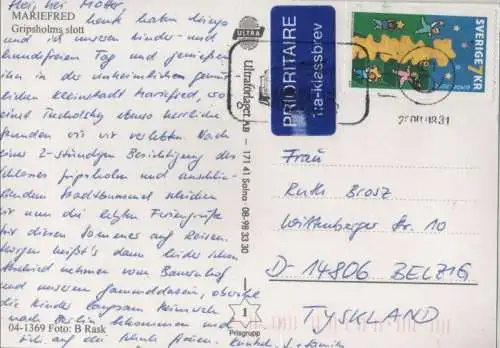 Hej, hej Mutter,
MARIEFRED
Gripsholms slott
heute haben Mirjo
und ich unseren kinder- und
hundefreien Tag und genießen
ihn in der unheimlichen gemüt-
lichen Kleinstadt Mariefred, wo
einst Tucholsky ebenso herrliche
Stunden wie wir verlebte. Nach
einer 2-stündigen Besichtigung des
Schlosses Gripsholm und anschlie-
ßendem Stadtbummel schicken
wir nun die letzten Feriengrüße
für diesen Sommer auf Reisen.
Morgen heißt's dann leider schon
Abschied nehmen vom Bauernhof
und unserem Gammeldasein, obwohl
die Kinder langsam Heimweh
nach Berlin bekommen und
sich auf die Schule freuen.
04-1369 Foto: B Rask
ULTRA
Ultraförlaget AB - 171 41 Solna 08-98 33 30
1
Prisgrupp
PRIORITAIRE
1:a-klassbrev
SVERIGE
KR
Frau
Ruth Brosz
Wittenberger Str. 10
D-14806 BELZIG
TYSKLAND